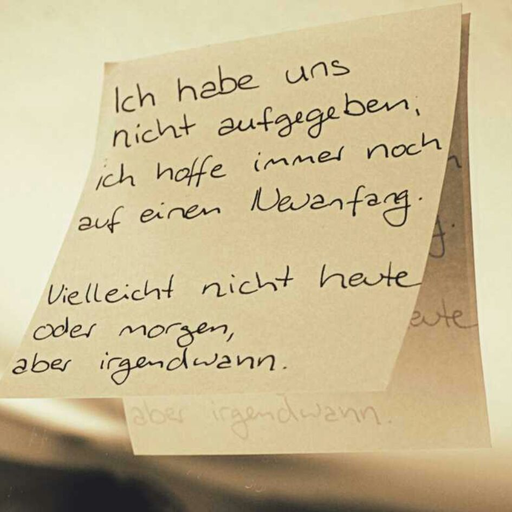 Ich habe uns
nicht aufgegeben,
ich hoffe immer noch
auf einen Neuanfang.
Vielleicht nicht heute
oder morgen,
aber irgendwann.
n
g.
eute
aber irgendwann.